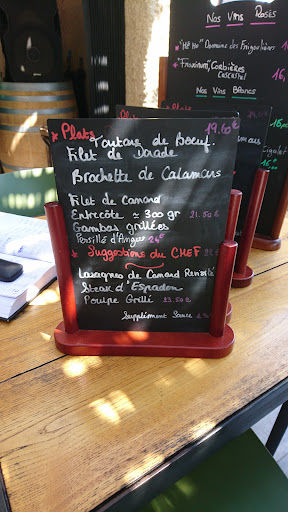 Nos Vins Rosés
"Hé Ho" Domaine des
Corbières
Nos Vins Blancs
Plats 19.50€
Tartare de Boeuf.
Filet de Dorade
Brochette de Calamars
Filet de Canard
Entrecôte ≈ 300 gr 21.50€
Gambas grillées
Persillé d'Angus 24€
Suggestions du CHEF
Lasagnes de Canard Revisité
Steak d'Espadon
Poulpe Grillé 23.50€
Supplément Sauce